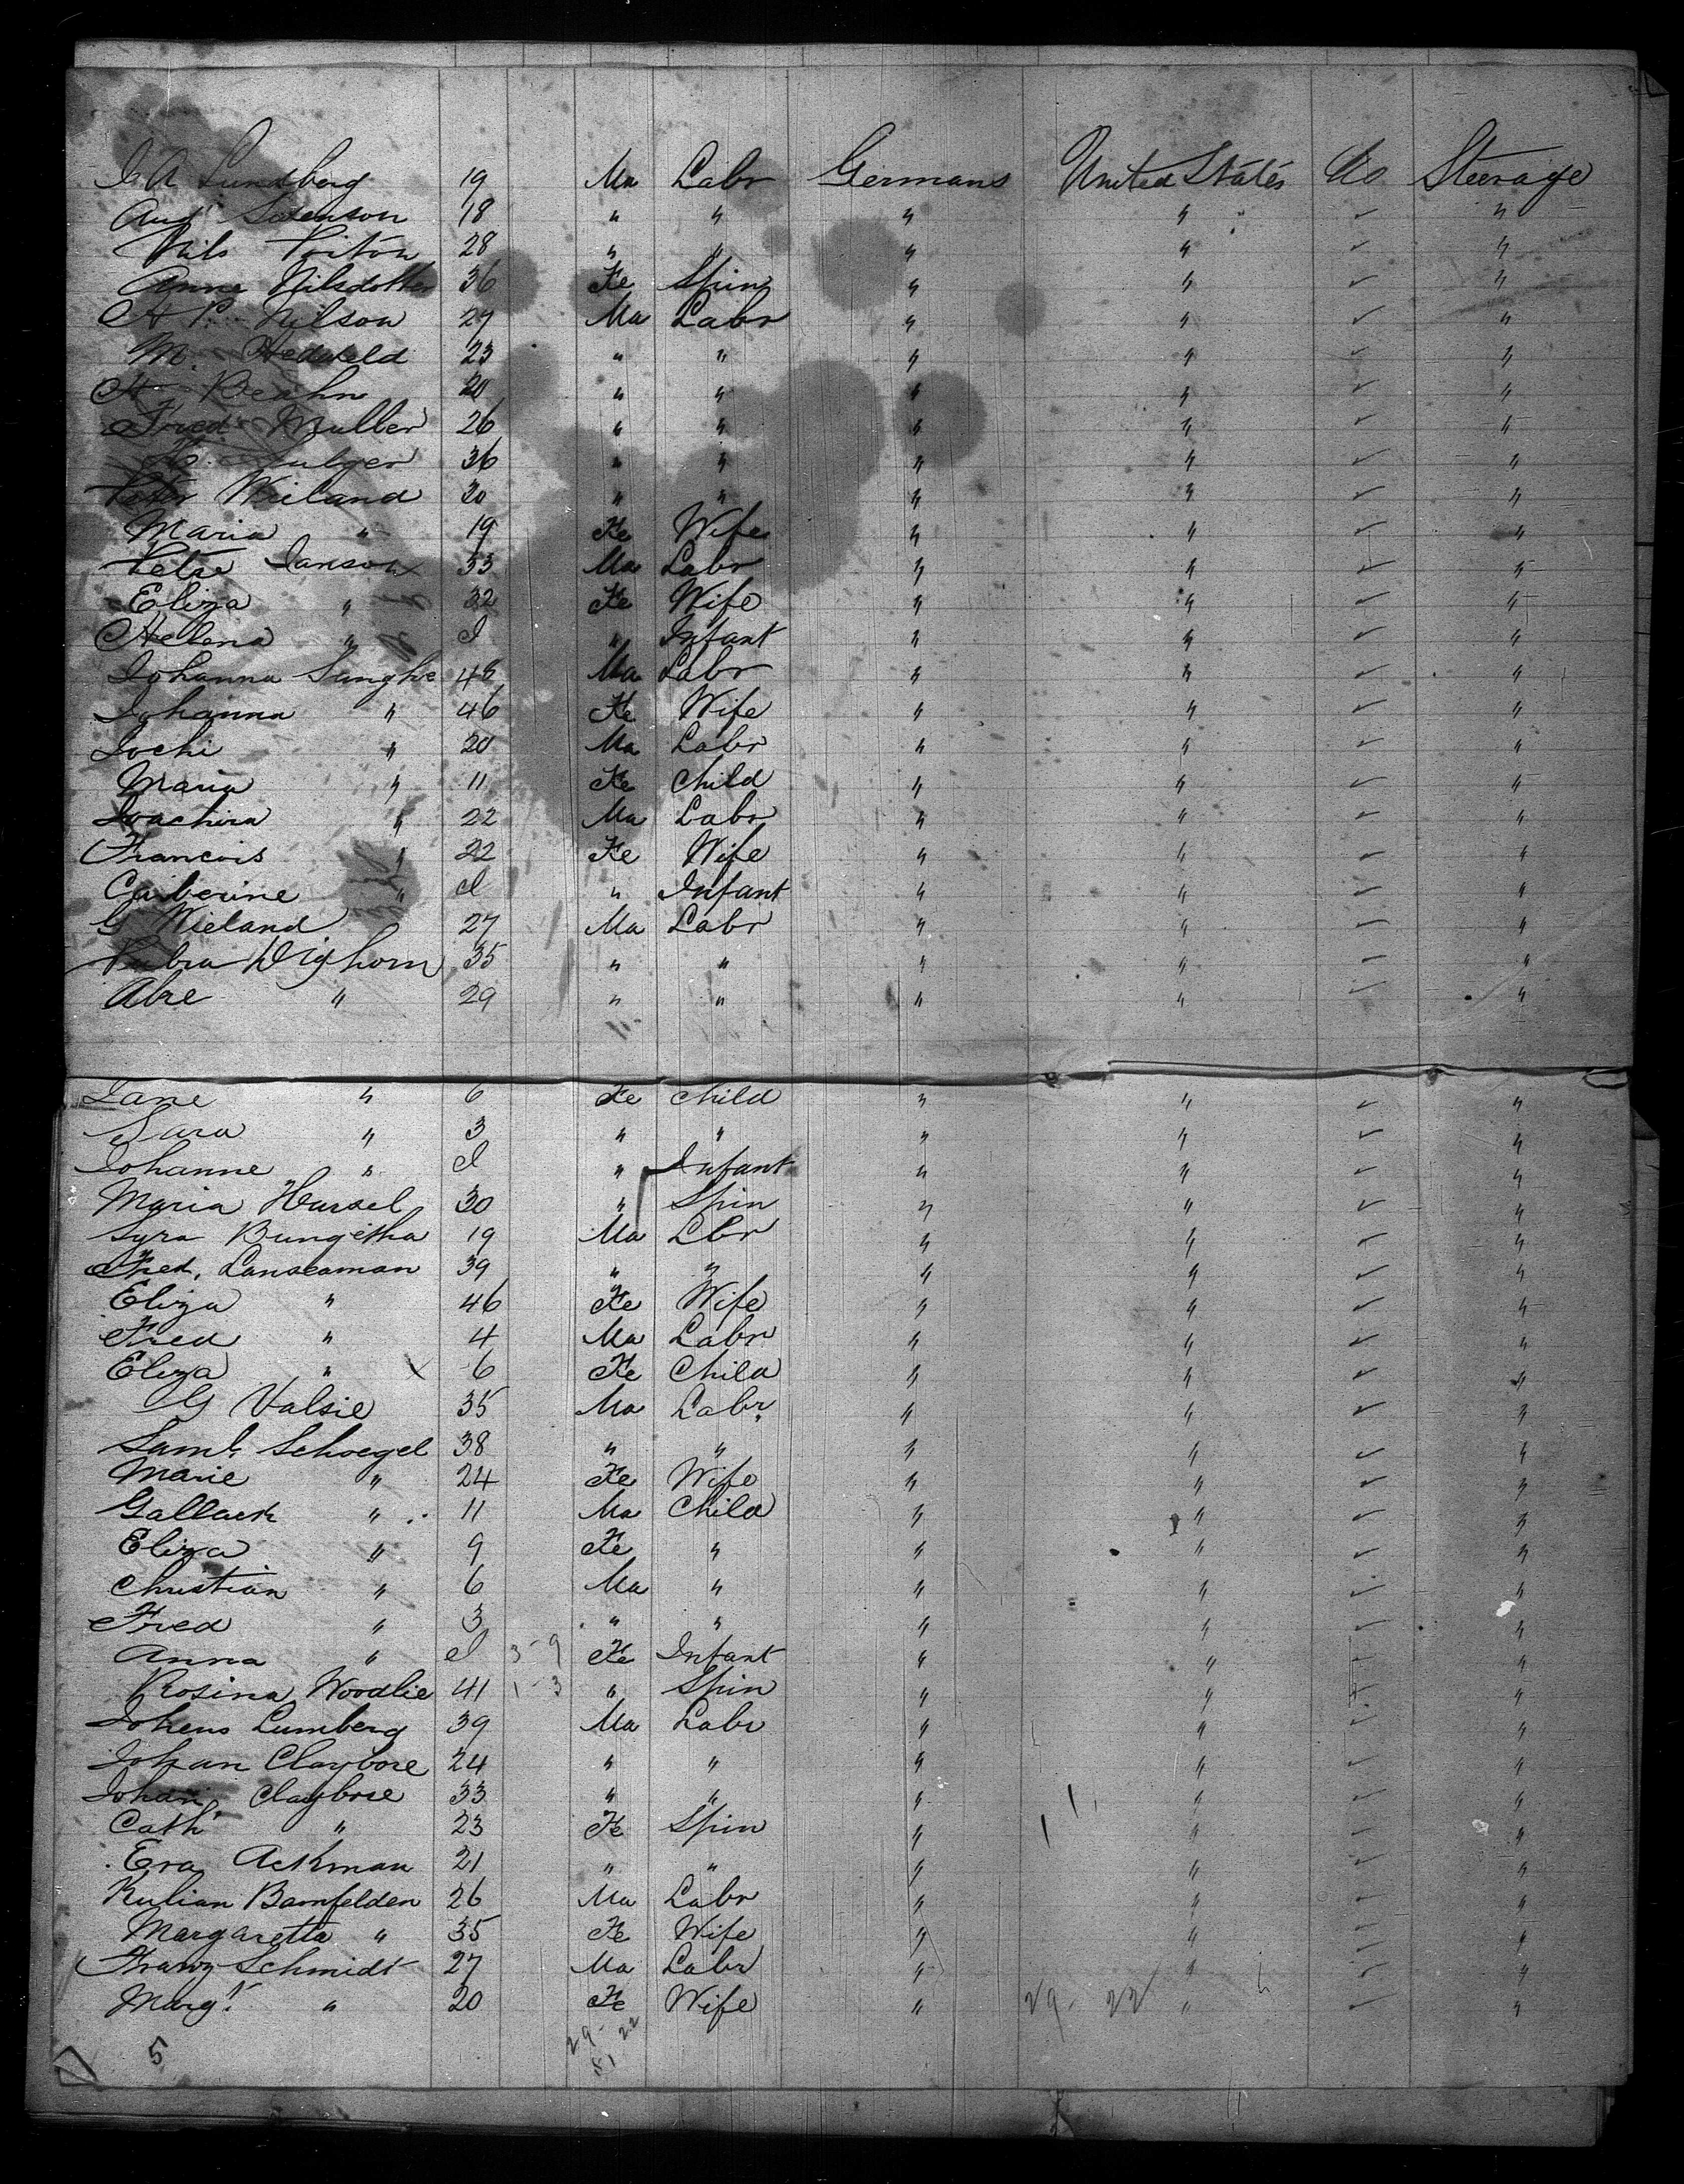 J A Lundberg 19 Ma Labr Germans United States do Steerage
Aug Sorenson 18 " " " " ✓ "
Nils 28 " " " " ✓ "
Anna Nilsdotter 36 Fe Spin " " ✓ "
H P. Nilson 27 Ma Labr " " ✓ "
M. 23 " " " " ✓ "
H Beahn 20 " " " " ✓ "
Fred Muller 26 " " " " ✓ "
36 " " " " ✓ "
Peter Wieland 30 " " " " ✓ "
Maria " 19 Fe Wife " " ✓ "
Peter Janson 33 Ma Labr " " ✓ "
Eliza " 32 Fe Wife " " ✓ "
Helena " I " Infant " " ✓ "
Johanna Sunghe 48 Ma Labr " " ✓ "
Johanna " 46 Fe Wife " " ✓ "
Jochi " 20 Ma Labr " " ✓ "
Maria " 11 Fe Child " " ✓ "
Joachim " 22 Ma Labr " " ✓ "
Francois " 22 Fe Wife " " ✓ "
Catherine " I " Infant " " ✓ "
G Wieland 27 Ma Labr " " ✓ "
Dighorn 35 " " " " ✓ "
Abre " 29 " " " " ✓ "
Jane " 6 Fe Child " " ✓ "
Sara " 3 " " " " ✓ "
Johanne " I " Infant " " ✓ "
Maria Hassel 30 " Spin " " ✓ "
Syra Bungetha 19 Ma Lbr " " ✓ "
Fred. Lanseaman 39 " " " " ✓ "
Eliza " 46 Fe Wife " " ✓ "
Fred " 4 Ma Labr " " ✓ "
Eliza " 6 Fe Child " " ✓ "
G Valsie 35 Ma Labr " " ✓ "
Saml. Schoegel 38 " " " " ✓ "
Marie " 24 Fe Wife " " ✓ "
Gallach " 11 Ma Child " " ✓ "
Eliza " 9 Fe " " " ✓ "
Christian " 6 Ma " " " ✓ "
Fred " 3 " " " " ✓ "
Anna " I 3-9 Fe Infant " " ✓ "
Rosina Woodlie 41 1-3 " Spin " " ✓ "
Johens Lumberg 39 Ma Labr " " ✓ "
Johan Claybore 24 " " " " ✓ "
Johan Claybore 33 " " " " ✓ "
Cath " 23 Fe Spin " " ✓ "
Eva Ackman 21 " " " " ✓ "
Kulian Bamfelden 26 Ma Labr " " ✓ "
Margaretta " 35 Fe Wife " " ✓ "
Franz Schmidt 27 Ma Labr " " ✓ "
Margt " 20 Fe Wife " 29-22 " ✓ "
29-22
5 51